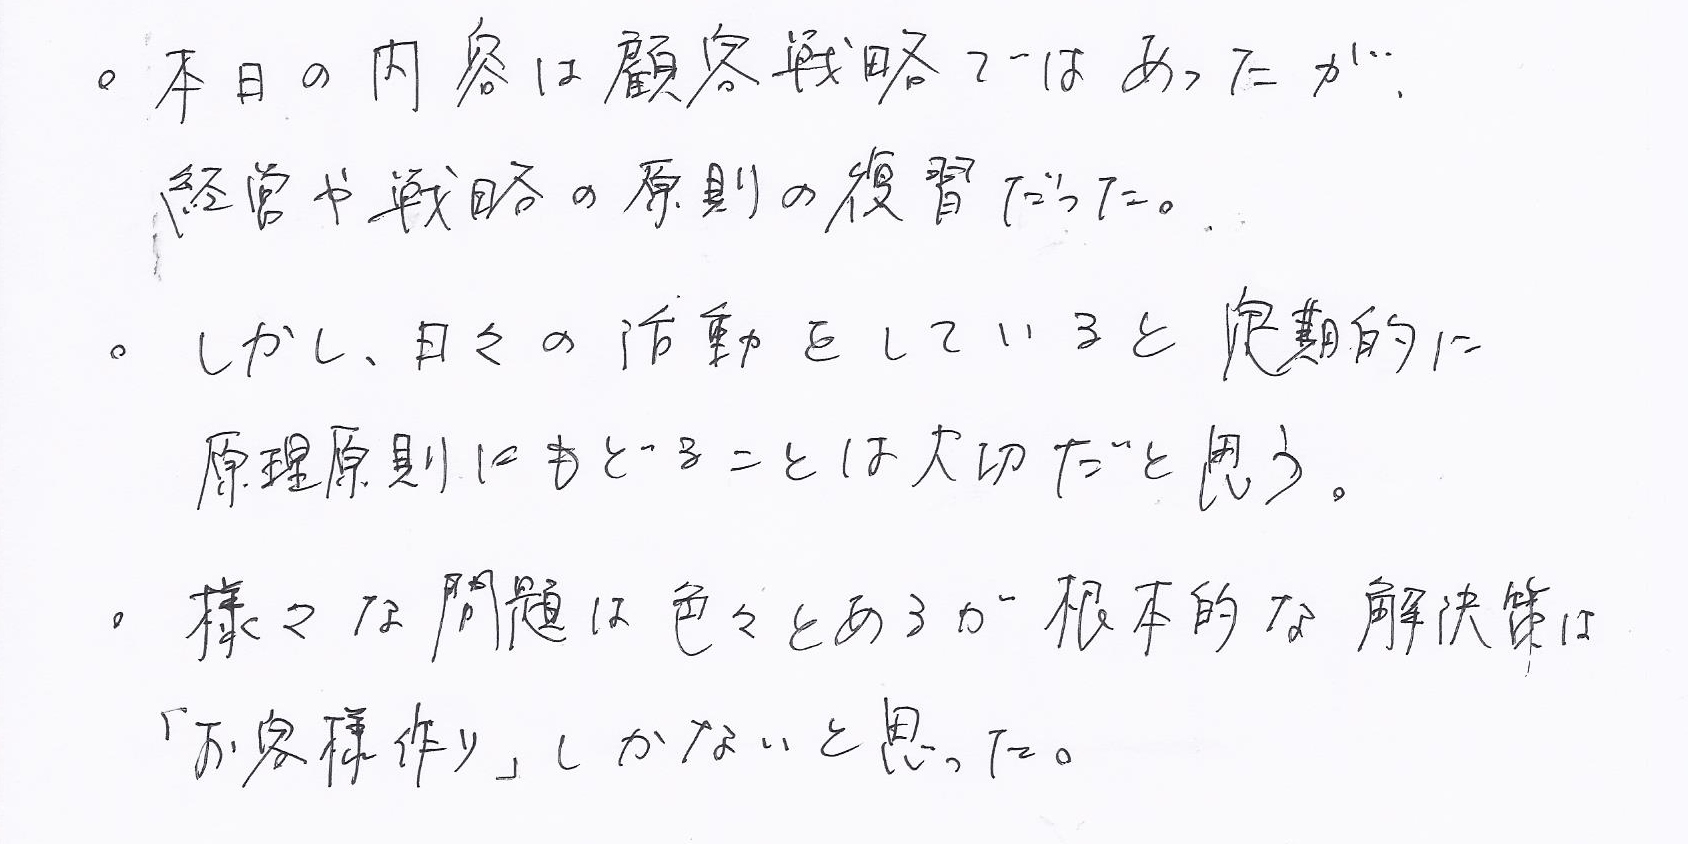 。本日の内容は顧客戦略ではあったが、
経営や戦略の原則の復習だった。
。しかし、日々の活動をしていると定期的に
原理原則にもどることは大切だと思う。
・様々な問題は色々とあるが根本的な解決策は
「お客様作り」しかないと思った。